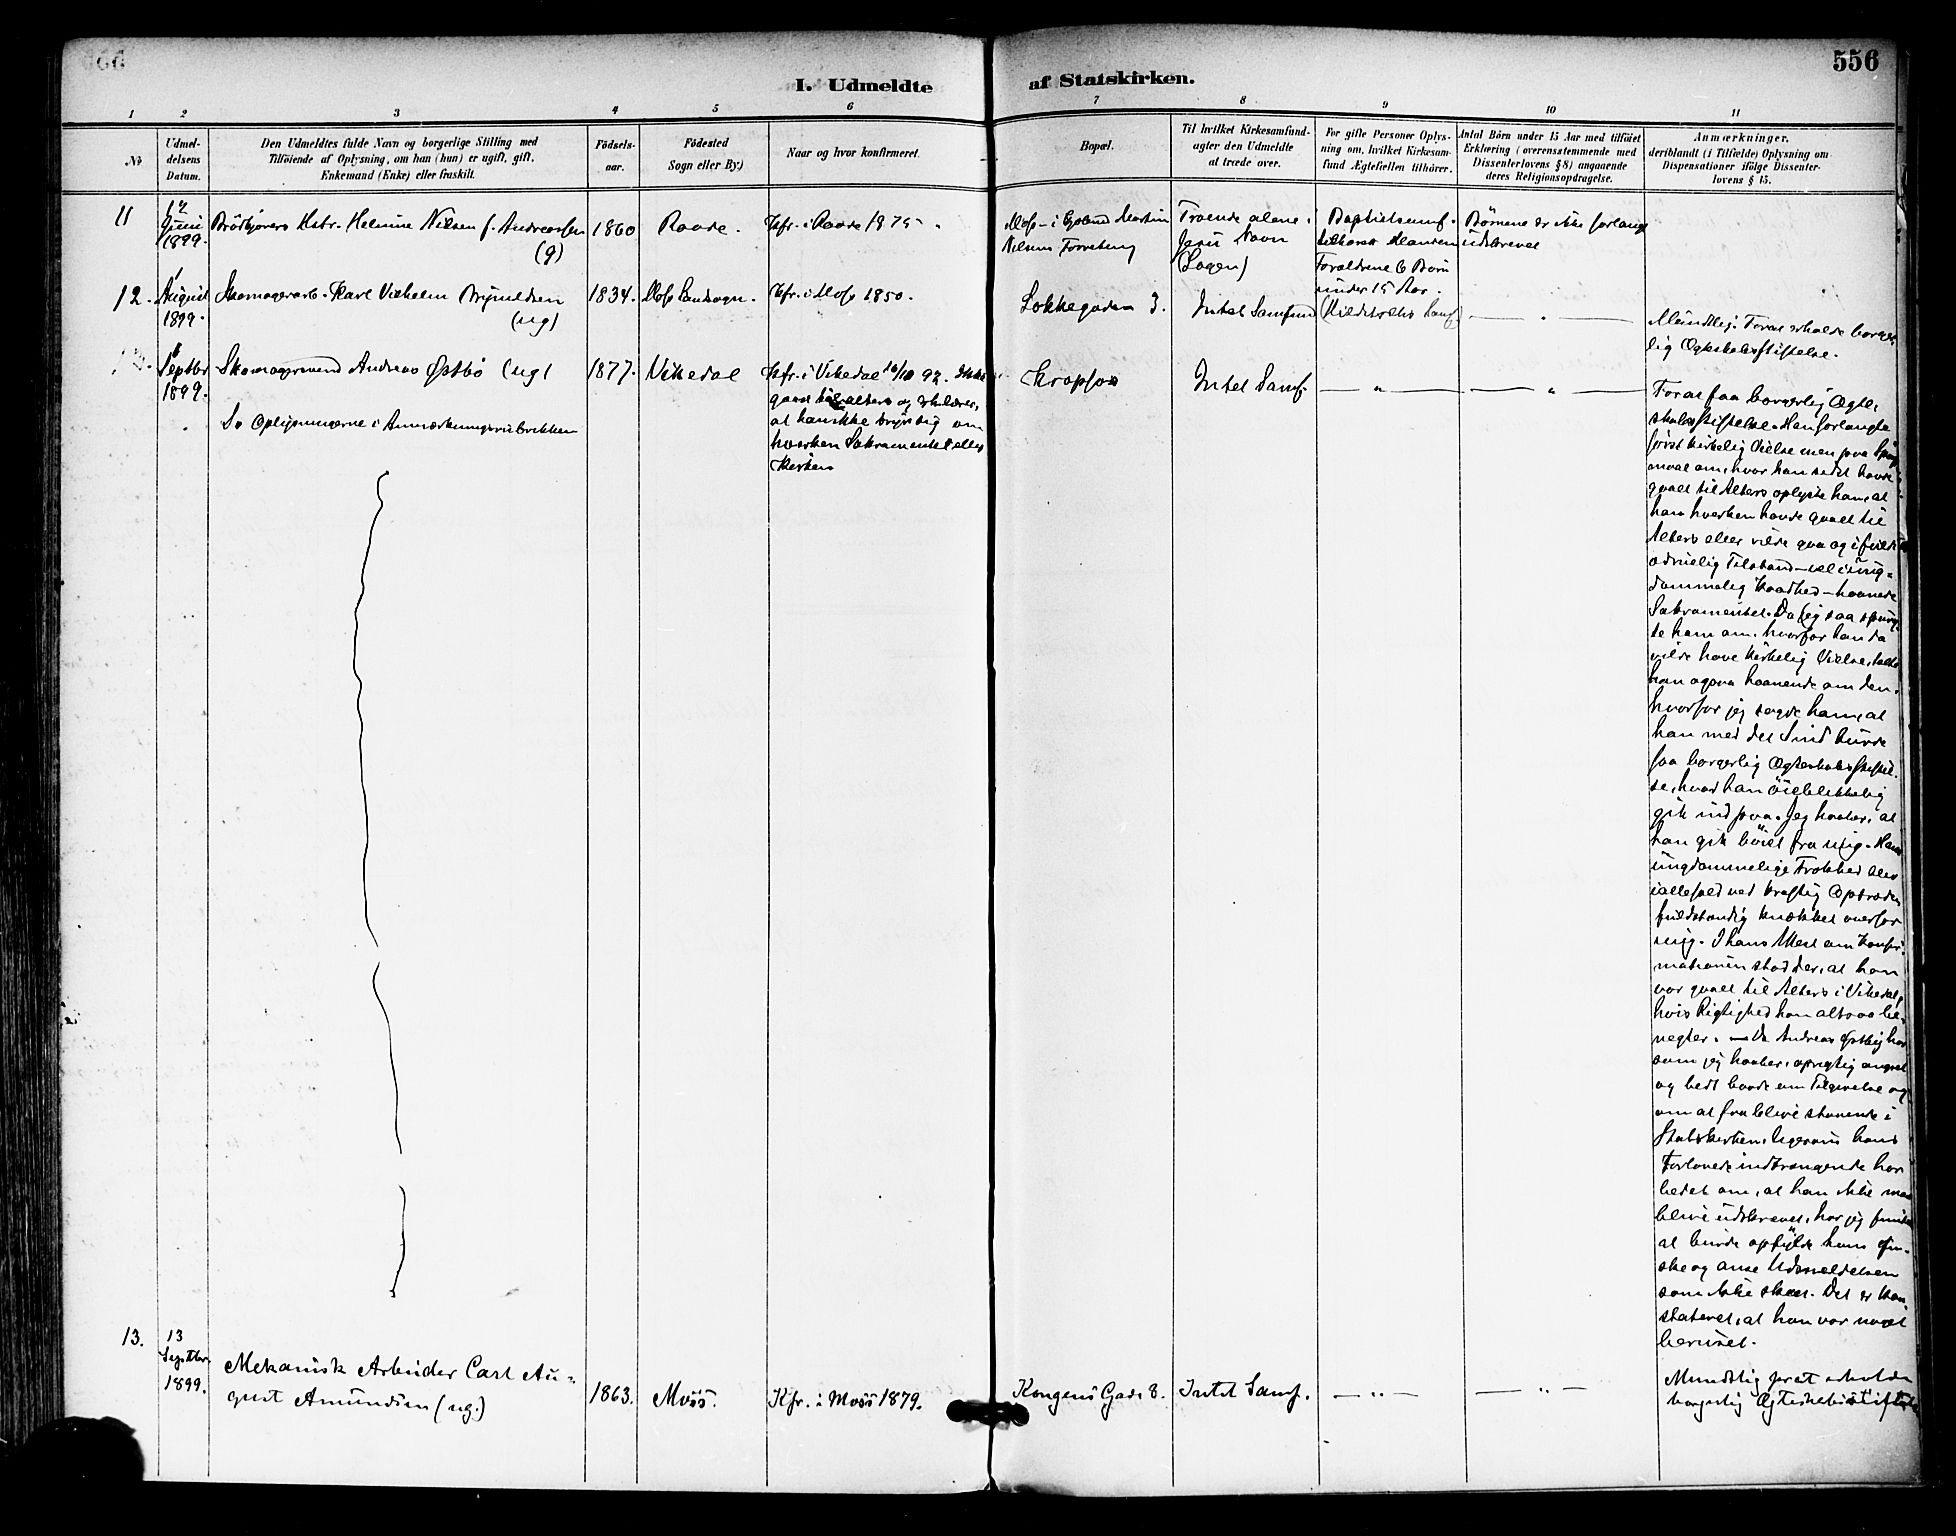 556
I. Udmeldte af Statskirken.
1 2 3 4 5 6 7 8 9 10 11
No
Udmel-
delsens
Datum.
Den Udmeldtes fulde Navn og borgerlige Stilling med
Tilföiende af Oplysning, om han (hun) er ugift, gift,
Enkemand (Enke) eller fraskilt.
Födsels-
aar.
Födested
Sogn eller By.)
Naar og hvor konfirmeret.
Bopæl.
Til hvilket Kirkesamfund-
agter den Udmeldte
at træde over.
For gifte Personer Oplys-
ning om, hvilket Kirkesam-
fund Ægtefællen tilhører.
Antal Börn under 15 Aar med tilföiet
Erklæring (overensstemmende med
Dissenterlovens § 8) angaaende
deres Religionsopdragelse.
Anmærkninger,
deriblandt (i Tilfælde) Oplysning om
Dispensationer ifölge Dissenter-
lovens § 15.
11
Juni
1899.
Hstr. Helmine Nilsen f. Andreassen
(g)
1860
Raade.
Kfr. i Raade 1875
Moss - i Martin
Nilsens
Troende alene i
Jesu Navn
(Logen)
Baptistsamf.
Hansen
Forældrene 6 Børn
under 15 Aar.
Børnene er ikke forlangt
udskrevet
12.
1
August
1899.
Skomagerarb. Karl Vilhelm Brynildsen
(ug)
1834.
Moss Landsogn.
Kfr. i Moss 1850.
Lokkegaden 3.
Intet Samfund
— „ —
Mundtlig. Foræt erholde borger
lig Ægteskabsstiftelse.
Septbr
1899.
Skomagersvend Andreas Østbø (ug)
Se Oplysningerne i Anmærkningsrubrikken
1877.
Vikedal
Kfr. i Vikedal 16/10 92. Ikke
gaaet til alters og erklærer,
at han ikke bryr sig om
hverken Sakramentet eller
Kirken
Kropsos
Intet Samf.
— „ —
— „ —
For at faa borgerlig Ægte-
skabsstiftelse. Han forlangte
først kirkelig Vielse men paa Spørg
smaal om, hvor han sidst havde
gaaet til Alters oplyste han, at
han hverken havde gaaet til
Alters eller vilde gaa og i fuld
ædruelig Tilstand - vel i ung-
dommelig Kaadhed - haanede
Sakramentet. Da jeg saa spurg-
te ham om, hvorfor han da
vilde have kirkelig Vielse, talte
han ogsaa haanende om den,
hvorfor jeg sagde ham, at
han med det Sind burde
faa borgerlig Ægteskabsstiftel-
se, hvad han öieblikkelig
gik ind paa. Jeg haaber, at
han gik böiet fra mig. Hans
ungdommelige Frækhed blev
ialfald ved kraftig Optræden
fuldstændig knækket overfor
mig. I hans Attest om Konfir-
mationen stod der, at han
var gaaet til Alters i Vikedal,
hvis Rigtighed han altsaa be-
negter. — Da Andreas Østbø har
som jeg haaber, oprigtig angret
og bedt baade om Tilgivelse og
om at faa blive staaende i
Statskirken, ligesom hans
Forlovede indtrængende har
bedet om, at han ikke maa
blive udskrevet, har jeg fundet
at burde opfylde hans Øn-
ske og anse Udmeldelsen
som ikke skeet. Det er kon-
stateret, at han var noget
beruset.
13.
13
Septbr.
1899.
Mekanisk Arbeider Carl Au-
gust Amundsen (ug.)
1863.
Moss.
Kfr. i Moss 1879.
Kongens Gade 8.
Intet Samf.
— „ —
— „ —
Mundtlig for at erholde
borgerlig Ægteskabsstiftelse